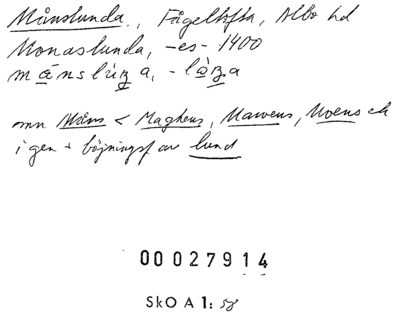 Månslunda., Fågeltofta, Albo hd
Monaslunda, -es- 1400
månslúza, -lòza
mn Måns < Maghens, Mawens, Moens ck
i gen + böjningsf av lund
00027914
SkO A 1: 58